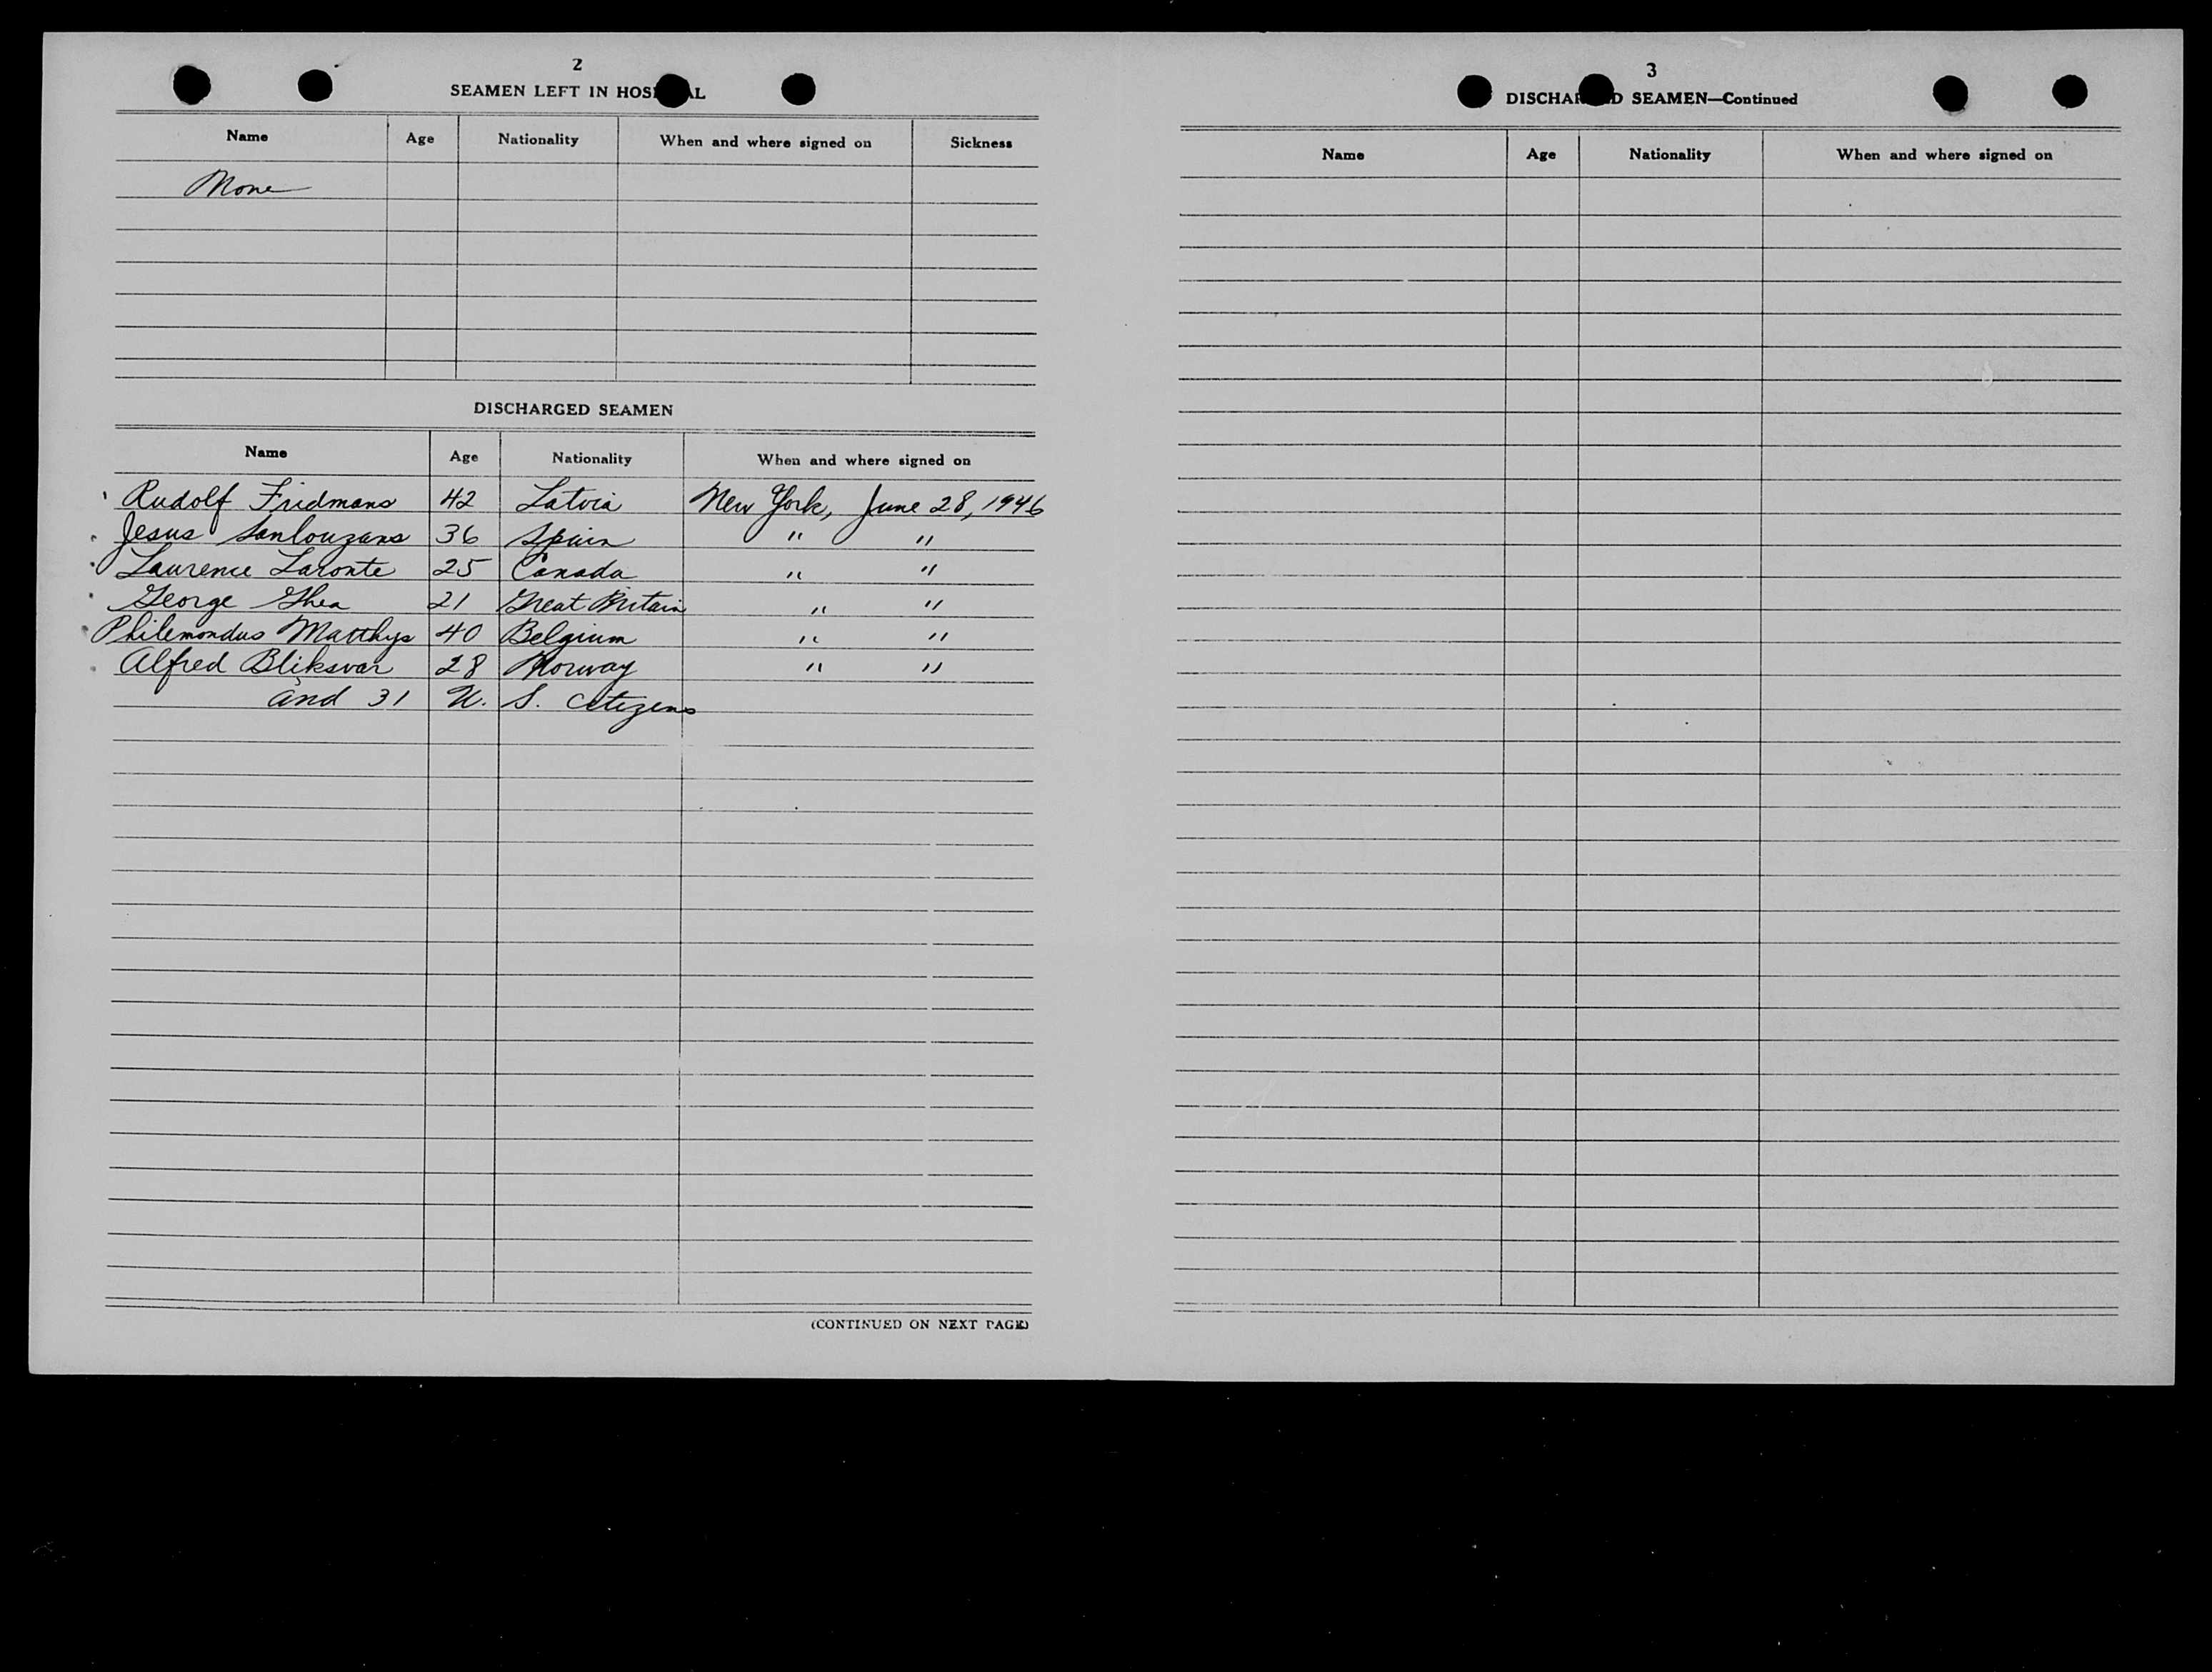 2
SEAMEN LEFT IN HOSPITAL
Name Age Nationality When and where signed on Sickness
None
DISCHARGED SEAMEN
Name Age Nationality When and where signed on
Rudolf Fridmans 42 Latvia New York, June 28, 1946
Jesus Sanlouzans 36 Spain " "
Laurence Laronte 25 Canada " "
George Shea 21 Great Britain " "
Philemondus Matthys 40 Belgium " "
Alfred Bliksvar 28 Norway " "
and 31 U. S. Citizens
(CONTINUED ON NEXT PAGE)
3
DISCHARGED SEAMEN—Continued
Name Age Nationality When and where signed on